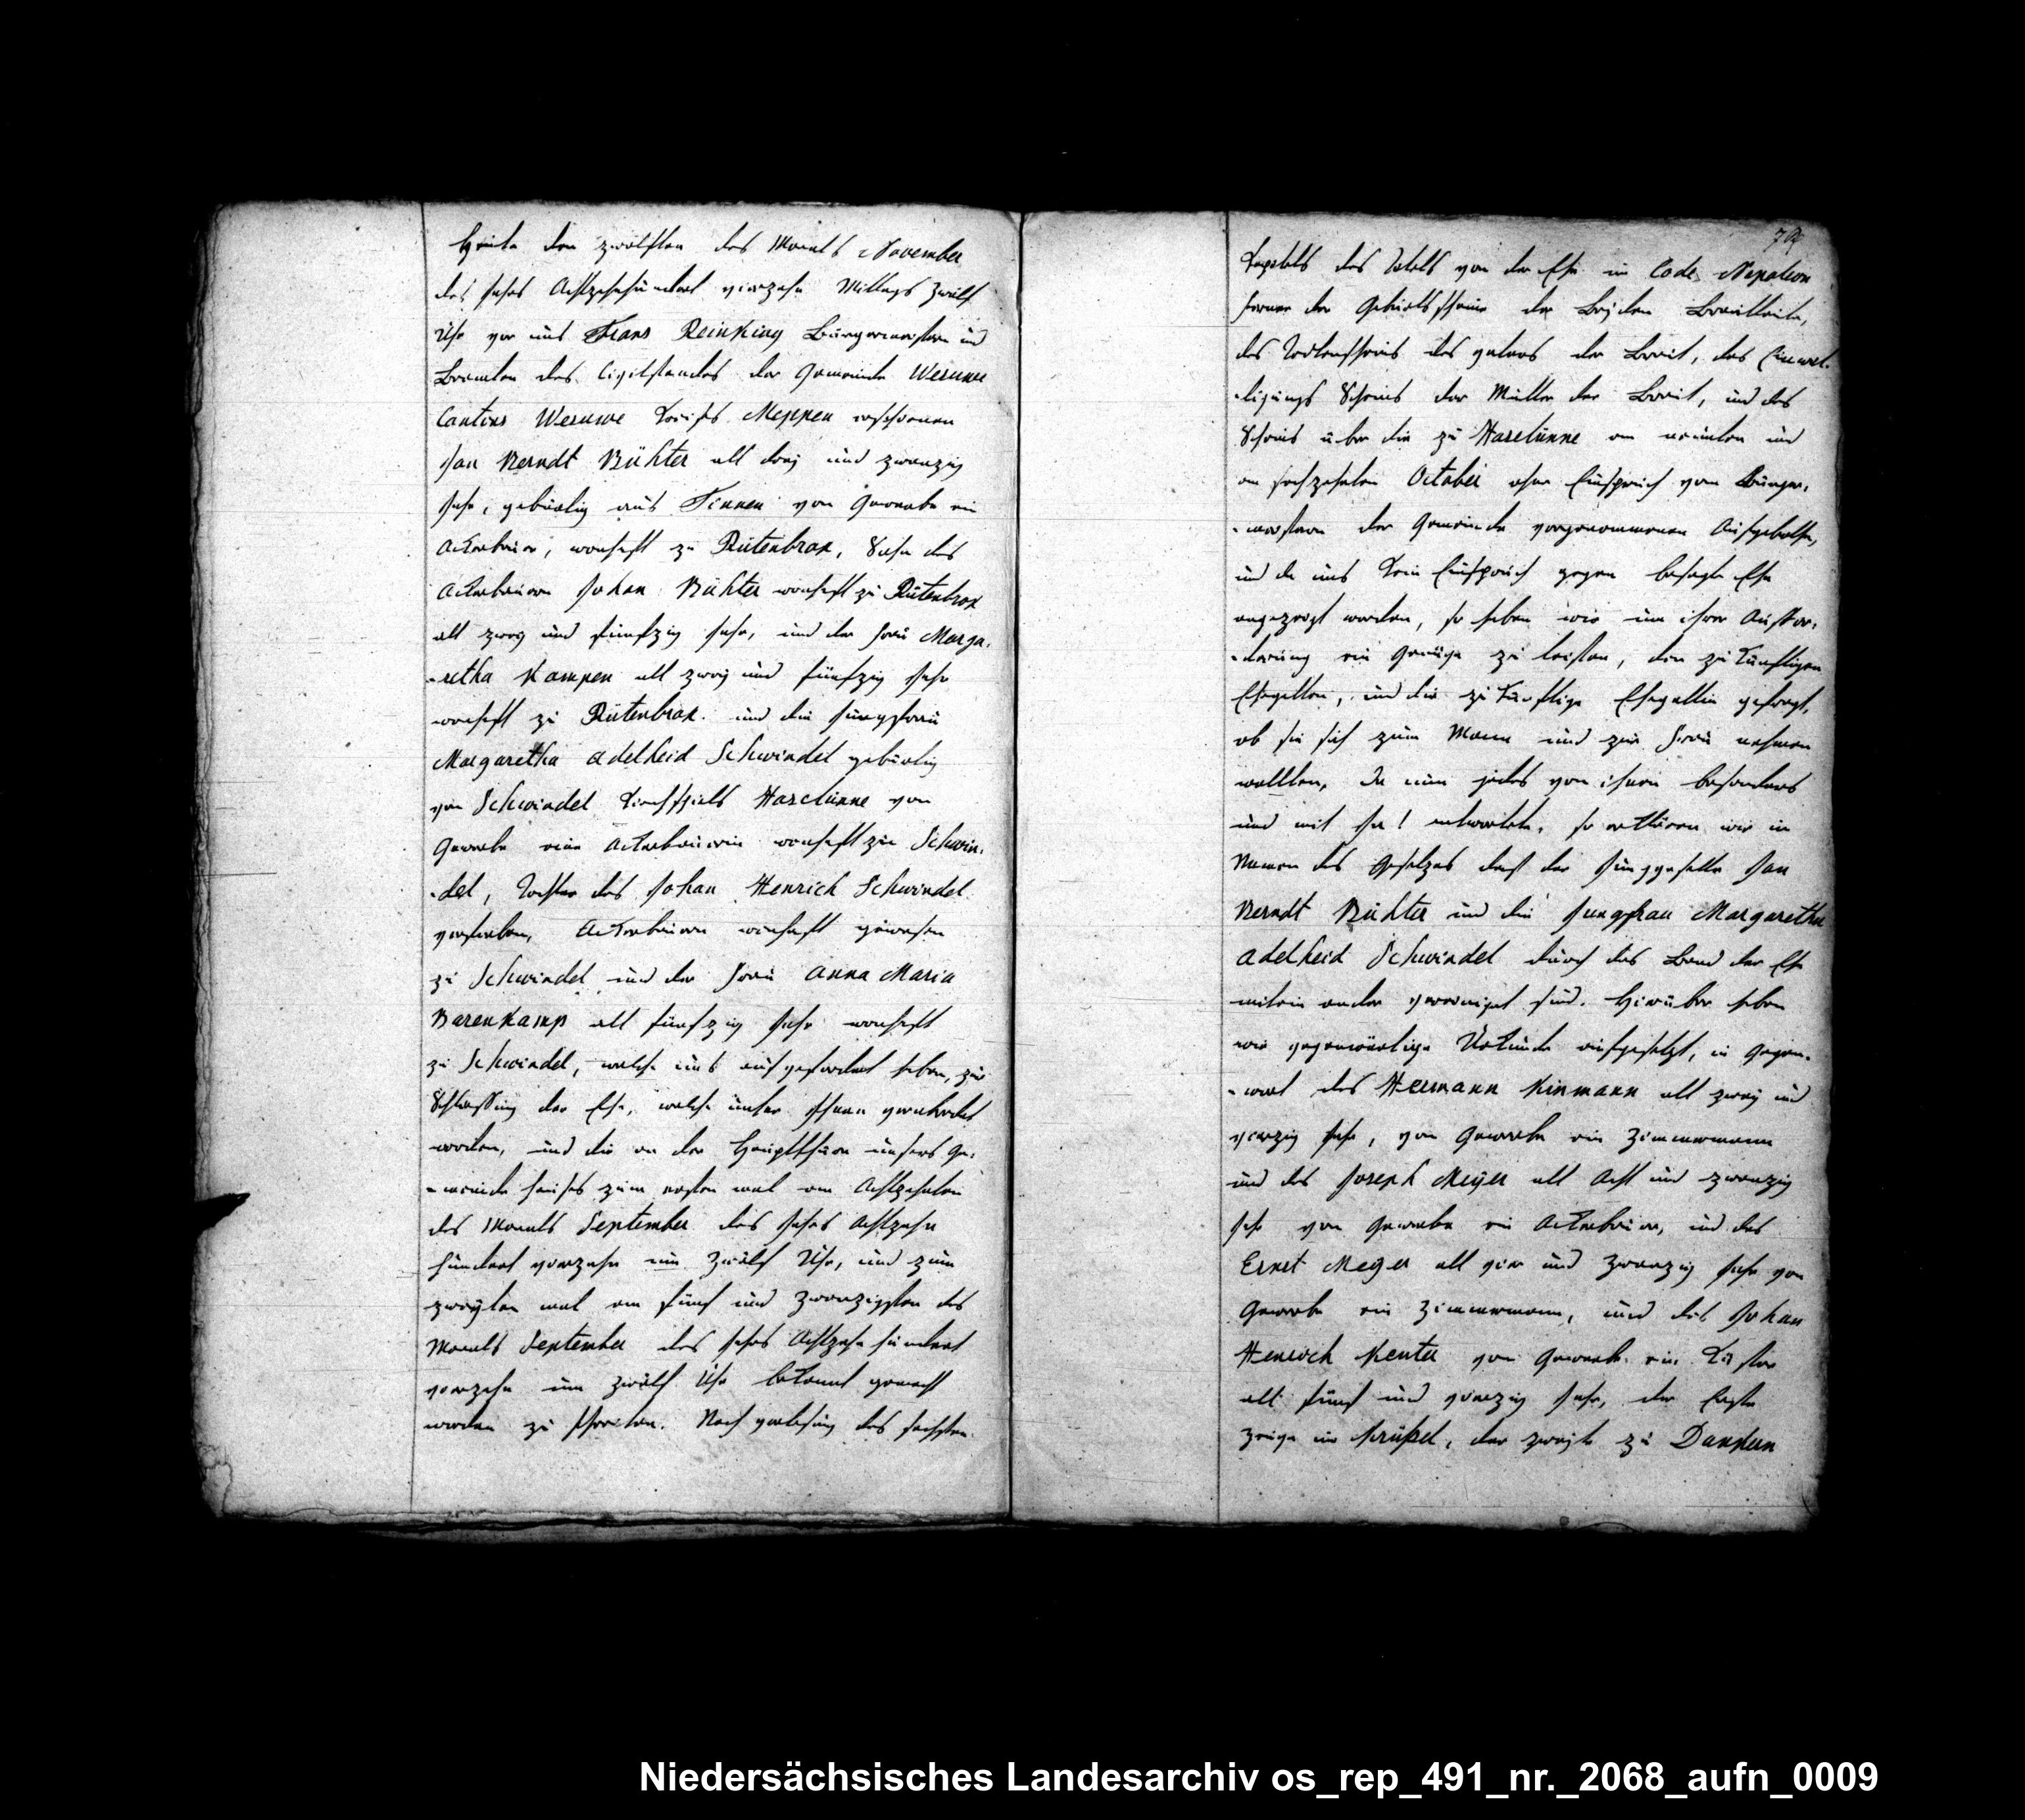 Heute den zwölften des Monats November
des Jahrs Achtzehnhundert vierzehn Mittags zwölf
Uhr vor uns Frans Reinking Bürgermeistern und
Beamten des Civilstandes der Gemeinde Wesuwe
Cantons Wesuwe Kreises Meppen erschienen
Jan Berndt Bühter alt drey und zwanzig
Jahr, gebürtig aus Tinnen von Gewerbe ein
Ackerbauer, wonhaft zu Rütenbrok, Sohn des
Ackerbauern Johan Bühter wonhaft zu Rütenbrok
alt zwey und fünfzig Jahr, und der Frau Marga-
-retha Kampen alt zwey und fünfzig Jahr
wonhaft zu Rütenbrok. und die Jungfrau
Margaretha Adelheid Schwindel gebürtig
von Schwindel Kirchspiels Haselünne von
Gewerbe eine Ackerbäuerin wonhaft zu Schwin-
-del, Tochter des Johan Henrich Schwindel
verstorben, Ackerbauern wonhaft gewesen
zu Schwindel und der Frau Anna Maria
Barenkamp alt fünfzig Jahr wonhaft
zu Schwindel, welche uns aufgefordert haben, zur
Schliessung der Ehe, welche unter Ihnen verabredet
worden, und die an der Hauptthüre unsers Ge-
-meinde Hauses zum ersten mal am Achtzehnten
des Monats September des Jahrs Achtzehn
hundert vierzehn um Zwölf Uhr, und zum
zweyten mal am fünf und Zwanzigsten des
Monats September des Jahrs Achtzehn hundert
vierzehn um zwölf Uhr bekannt gemacht
worden zu schreiten. Nach verlesung des sechsten
79
Kapitels des Titels von der Ehe im Code Napoleon
ferner der Geburtsscheine der Beyden Brautleute,
des Todtenscheins des vaters der Braut, des Einwil-
-ligungs Scheins der Mutter der Braut, und des
Scheins über die zu Haselünne am neunten und
am sechzehnten October ohne Einspruch vom Bürger-
-meistern der Gemeinde vorgenommenen Aufgebothe,
und da uns kein Einspruch gegen besagte Ehe
angezeigt worden, so haben wir um ihrer Auffor-
-derung ein Genüge zu leisten, den zu künftigen
Ehegatten, und die zu künftige Ehegattin gefragt,
ob sie sich zum Mann und zur Frau nehmen
wollten, Da nun jedes von ihnen besonders
und mit Ja! antwortete, so erklären wir im
Namen des Gesetzes daß der Junggeselle Jan
Berndt Bühter und die Jungfrau Margaretha
Adelheid Schwindel durch das Band der Ehe
mitein ander vereiniget sind. Hierüber haben
wir gegenwärtige Urkunde aufgesetzt, in Gegen-
-wart des Hermann Kinmann alt zwey und
vierzig Jahr, von Gewerbe ein Zimmermann
und des Joseph Meÿer alt Acht und zwanzig
Jahr von Gewerbe ein Ackerbauer, und des
Ernst Meyer alt vier und Zwanzig Jahr von
Gewerbe ein Zimmermann, und des Johan
Henrich Kenter von Gewerbe ein Küster
alt fünf und vierzig Jahr, der Erste
Zeuge in Krüßel, der zweyte zu Dankern
Niedersächsisches Landesarchiv os_rep_491_nr._2068_aufn_0009